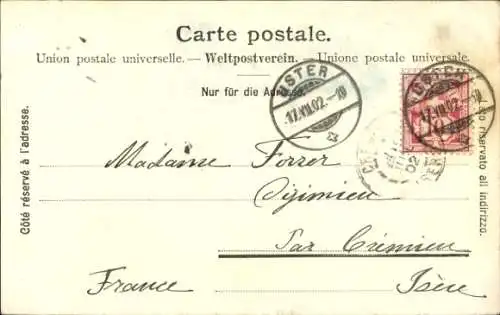 Carte postale.
Union postale universelle. — Weltpostverein. — Unione postale universale.
Nur für die Adresse.
USTER
17.VII.02.-10
USTER
17.VII.02.
Côté réservé à l'adresse.
Madame Forrer
Dizimieu
Par Crémieu
France Isère
riservato all indirizzo.